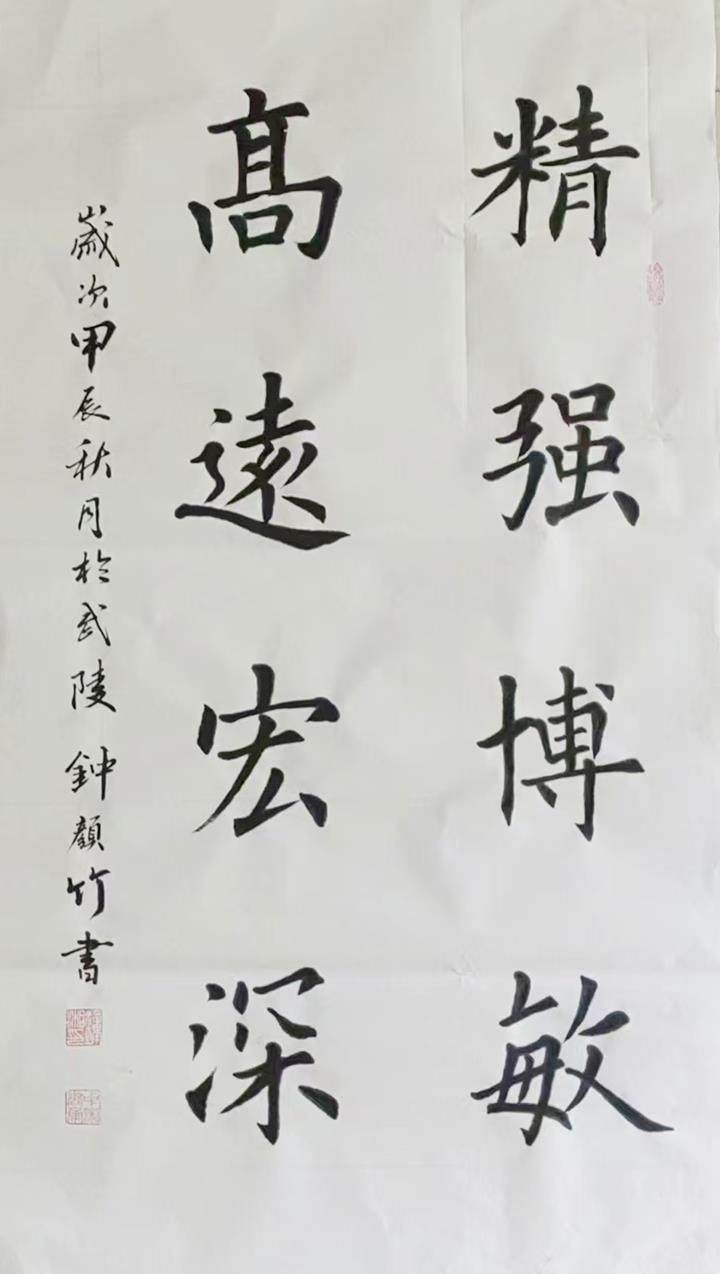 精强博敏
髙遠宏深
歲次甲辰秋月於武陵 鈡顏竹書